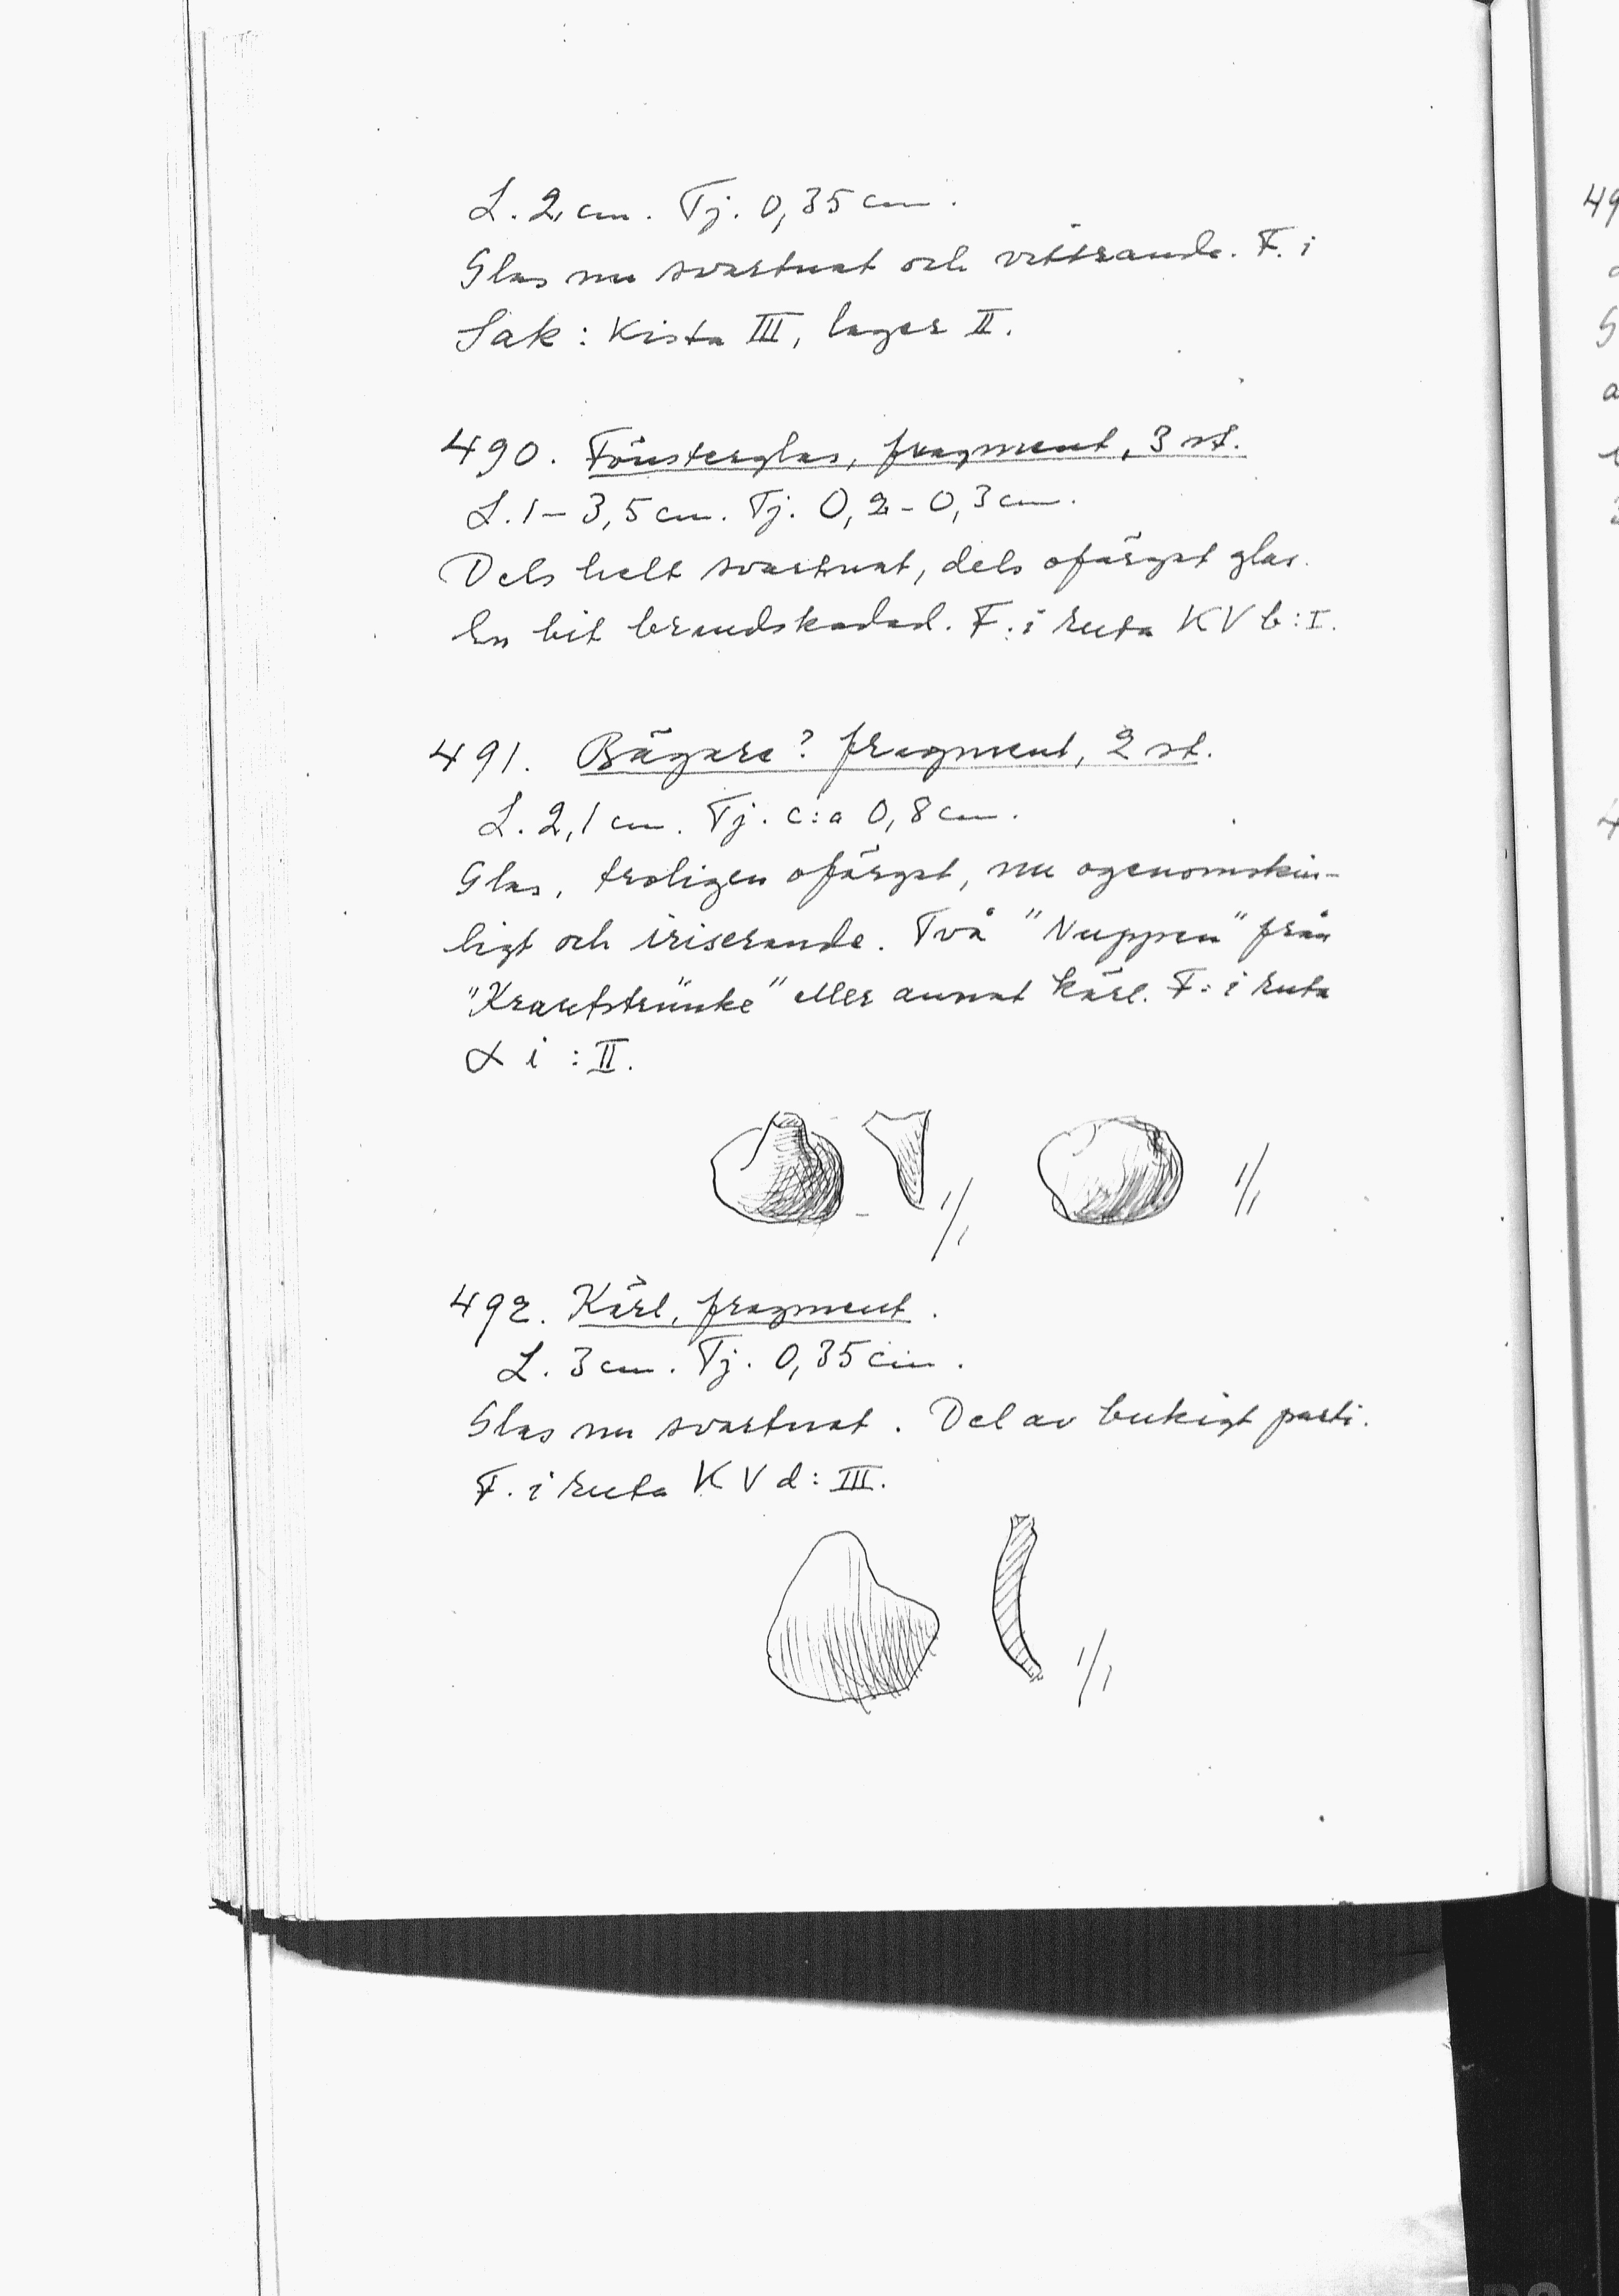 L. 2, cm. Tj. 0,35 cm.
Glas nu svartnat och vittrande. F. i
Sak: Kista III, lager II.
490. Fönsterglas, fragment, 3 st.
L. 1-3,5 cm. Tj. 0,2-0,3 cm.
Dels helt svartnat, dels ofärgat glas.
En bit brandskadad. F. i ruta KV b:I.
491. Bägare? fragment, 2 st.
L. 2,1 cm. Tj. c:a 0,8 cm.
Glas, troligen ofärgat, nu ogenomskin-
ligt och iriserande. Två "Nuppen" från
"Krautstrünke" eller annat kärl. F. i ruta
α i : II.
1/1 1/1
492. Kärl, fragment.
L. 3 cm. Tj. 0,35 cm.
Glas nu svartnat. Del av bukigt parti.
F. i ruta KV d: III.
1/1